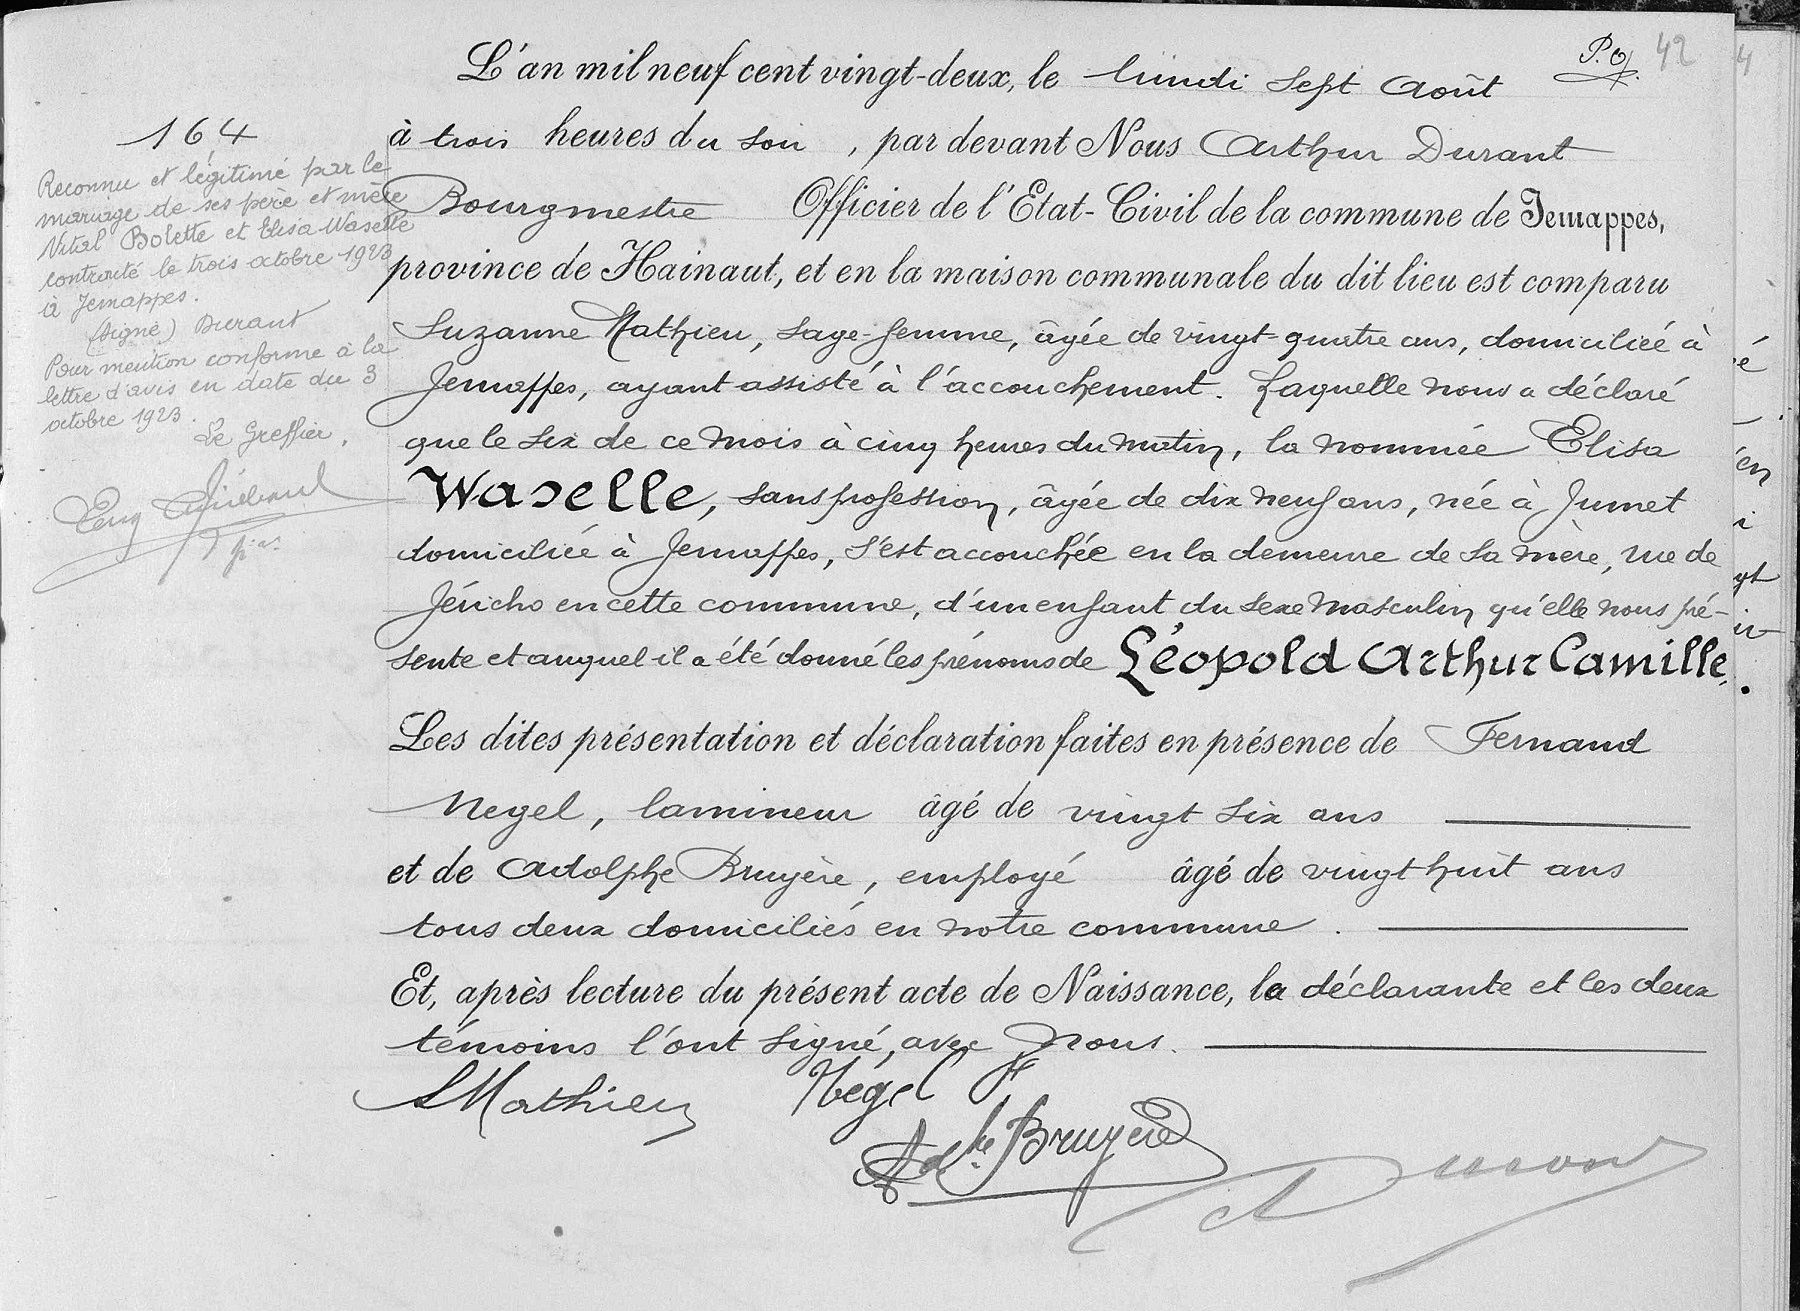 P.O. 42
L'an mil neuf cent vingt-deux, le lundi sept Août
à trois heures du soir, par devant Nous Arthur Durant
Bourgmestre Officier de l'Etat-Civil de la commune de Jemappes,
province de Hainaut, et en la maison communale du dit lieu est comparu
Suzanne Mathieu, sage-femme, âgée de vingt-quatre ans, domiciliée à
Jemappes, ayant assisté à l'accouchement. Laquelle nous a déclaré
que le six de ce mois à cinq heures du matin, la nommée Elisa
Waselle, sans profession, âgée de dix neuf ans, née à Jumet
domiciliée à Jemappes, s'est accouchée en la demeure de sa mère, rue de
Jéricho en cette commune, d'un enfant du sexe masculin qu'elle nous pré-
sente et auquel il a été donné les prénoms de Léopold Arthur Camille.
Les dites présentation et déclaration faites en présence de Fernand
Negel, lamineur âgé de vingt six ans
et de Adolphe Bruyère, employé âgé de vingt huit ans
tous deux domiciliés en notre commune.
Et, après lecture du présent acte de Naissance, la déclarante et les deux
témoins l'ont signé, avec Nous.
SMathieu Négel
Adhe Bruyère
A Durant
164
Reconnu et légitimé par le
mariage de ses père et mère
Vital Bolette et Elisa Waselle
contracté le trois octobre 1923
à Jemappes.
(signé) Durant
Pour mention conforme à la
lettre d'avis en date du 3
octobre 1923.
Le Greffier,